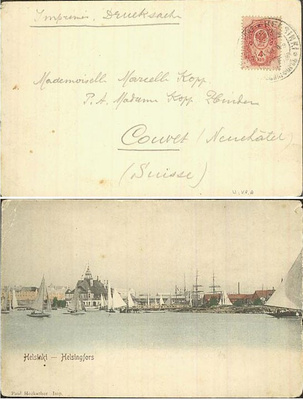 Imprimé, Drucksach
Mademoisell. Marcell. Kopp
P. A. Madame Kopp
Couvet (Neuchâtel)
(Suisse)
Helsinki — Helsingfors